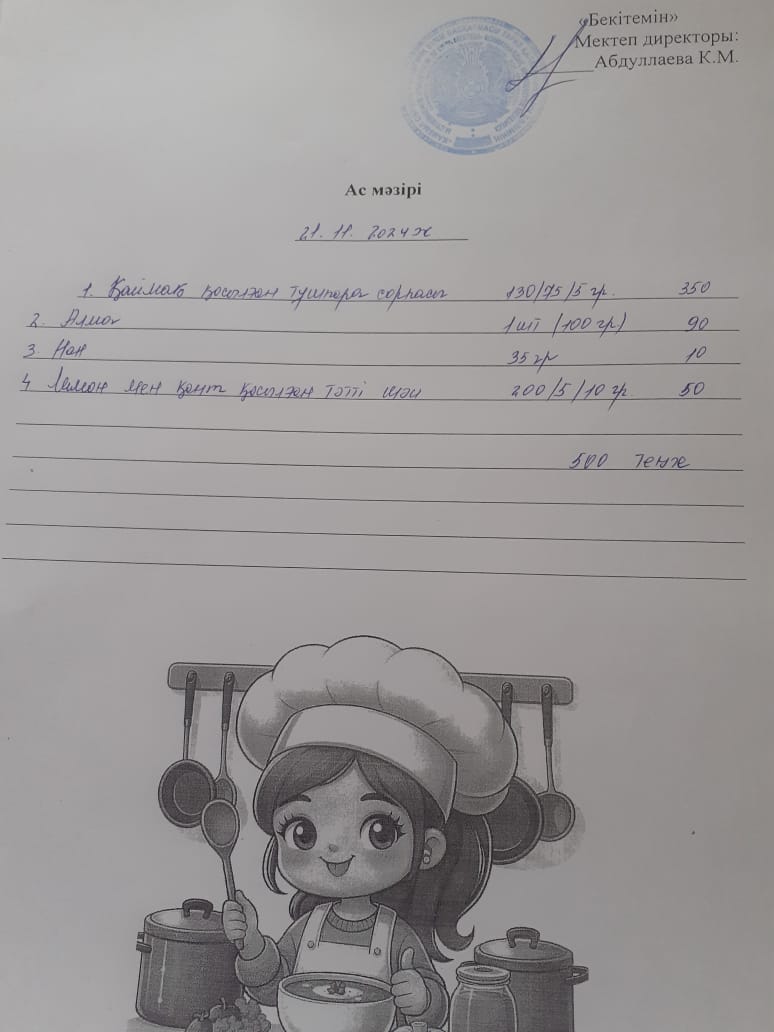 «Бекітемін»
Мектеп директоры:
Абдуллаева К.М.
Ас мәзірі
21.11.2024ж
1. Қаймақ қосылған тушпара сорпасы 130/75/5 гр. 350
2. Алма 1 шт (100 гр) 90
3. Нан 35 гр 10
4 Лимон мен қант қосылған тәтті шәй 200/5/10 гр. 50
500 теңге